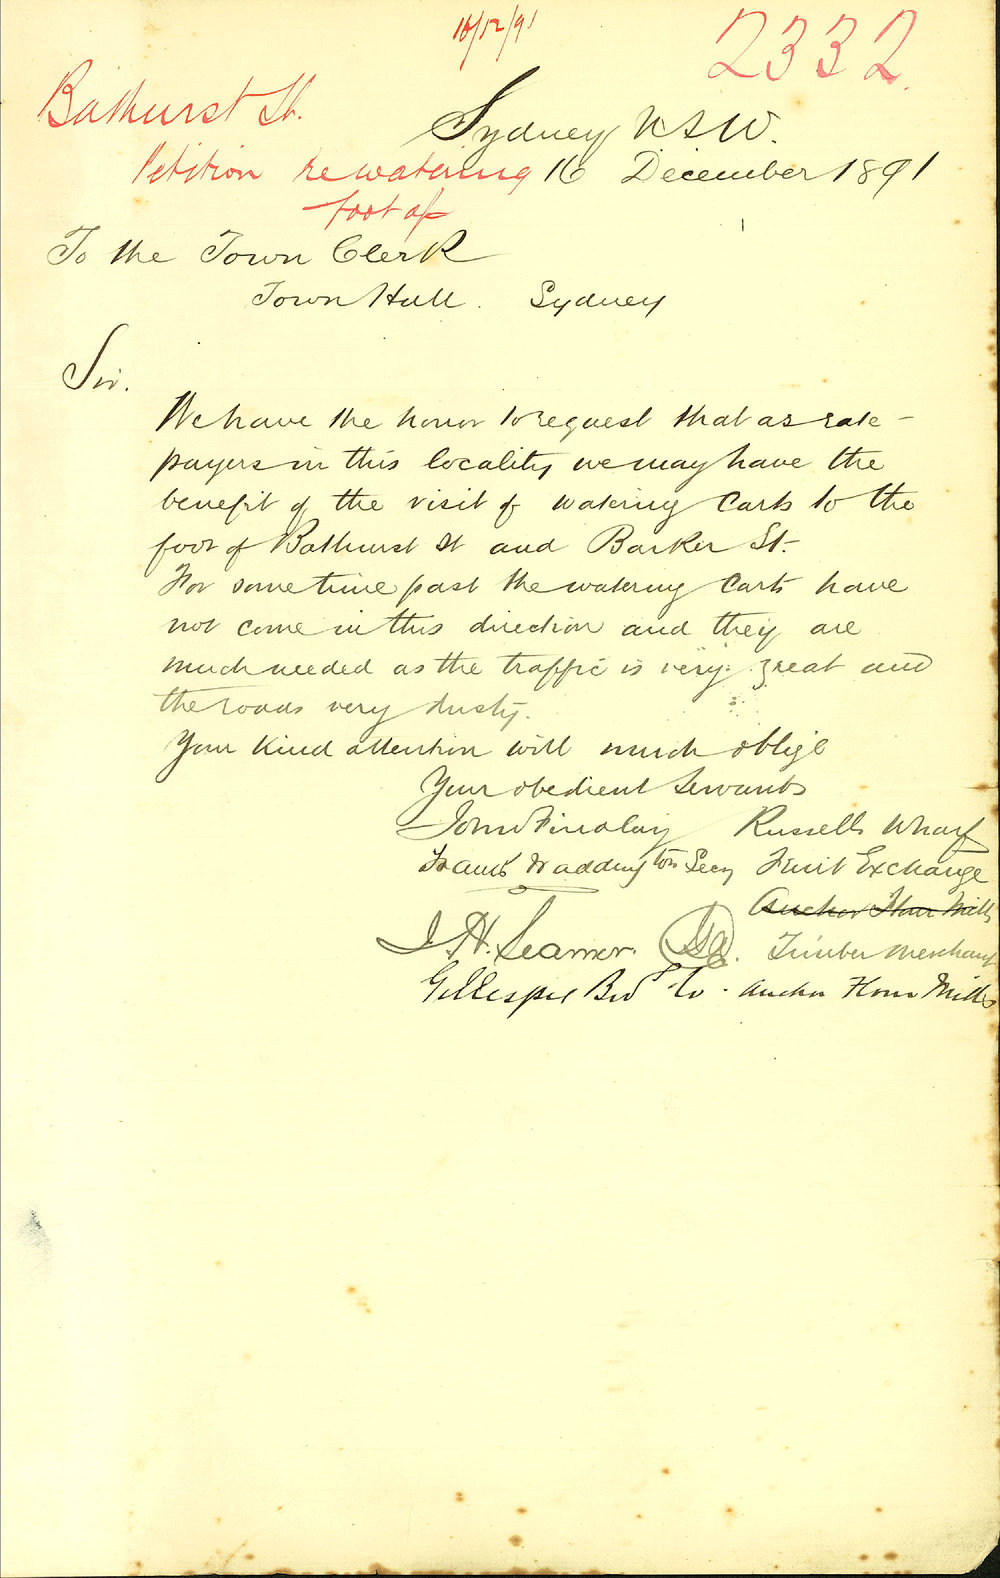 16/12/91
2332
Bathurst St.
Sydney NSW.
Petition re watering
16 December 1891
foot of
To the Town Clerk
Town Hall. Sydney
Sir.
We have the honor to request that as rate-
payers in this locality we may have the
benefit of the visit of watering Carts to the
foot of Bathurst St and Barker St.
For some time past the watering Carts have
not come in this direction and they are
much needed as the traffic is very great and
the roads very dusty.
Your kind attention will much oblige
Your obedient Servants
John Findlay Russells Wharf
Frank Waddington Secy Fruit Exchange
Anchor Flour Mills
J. H. Seamer. Timber Merchant
Gillespie Bros & Co. Anchor Flour Mills